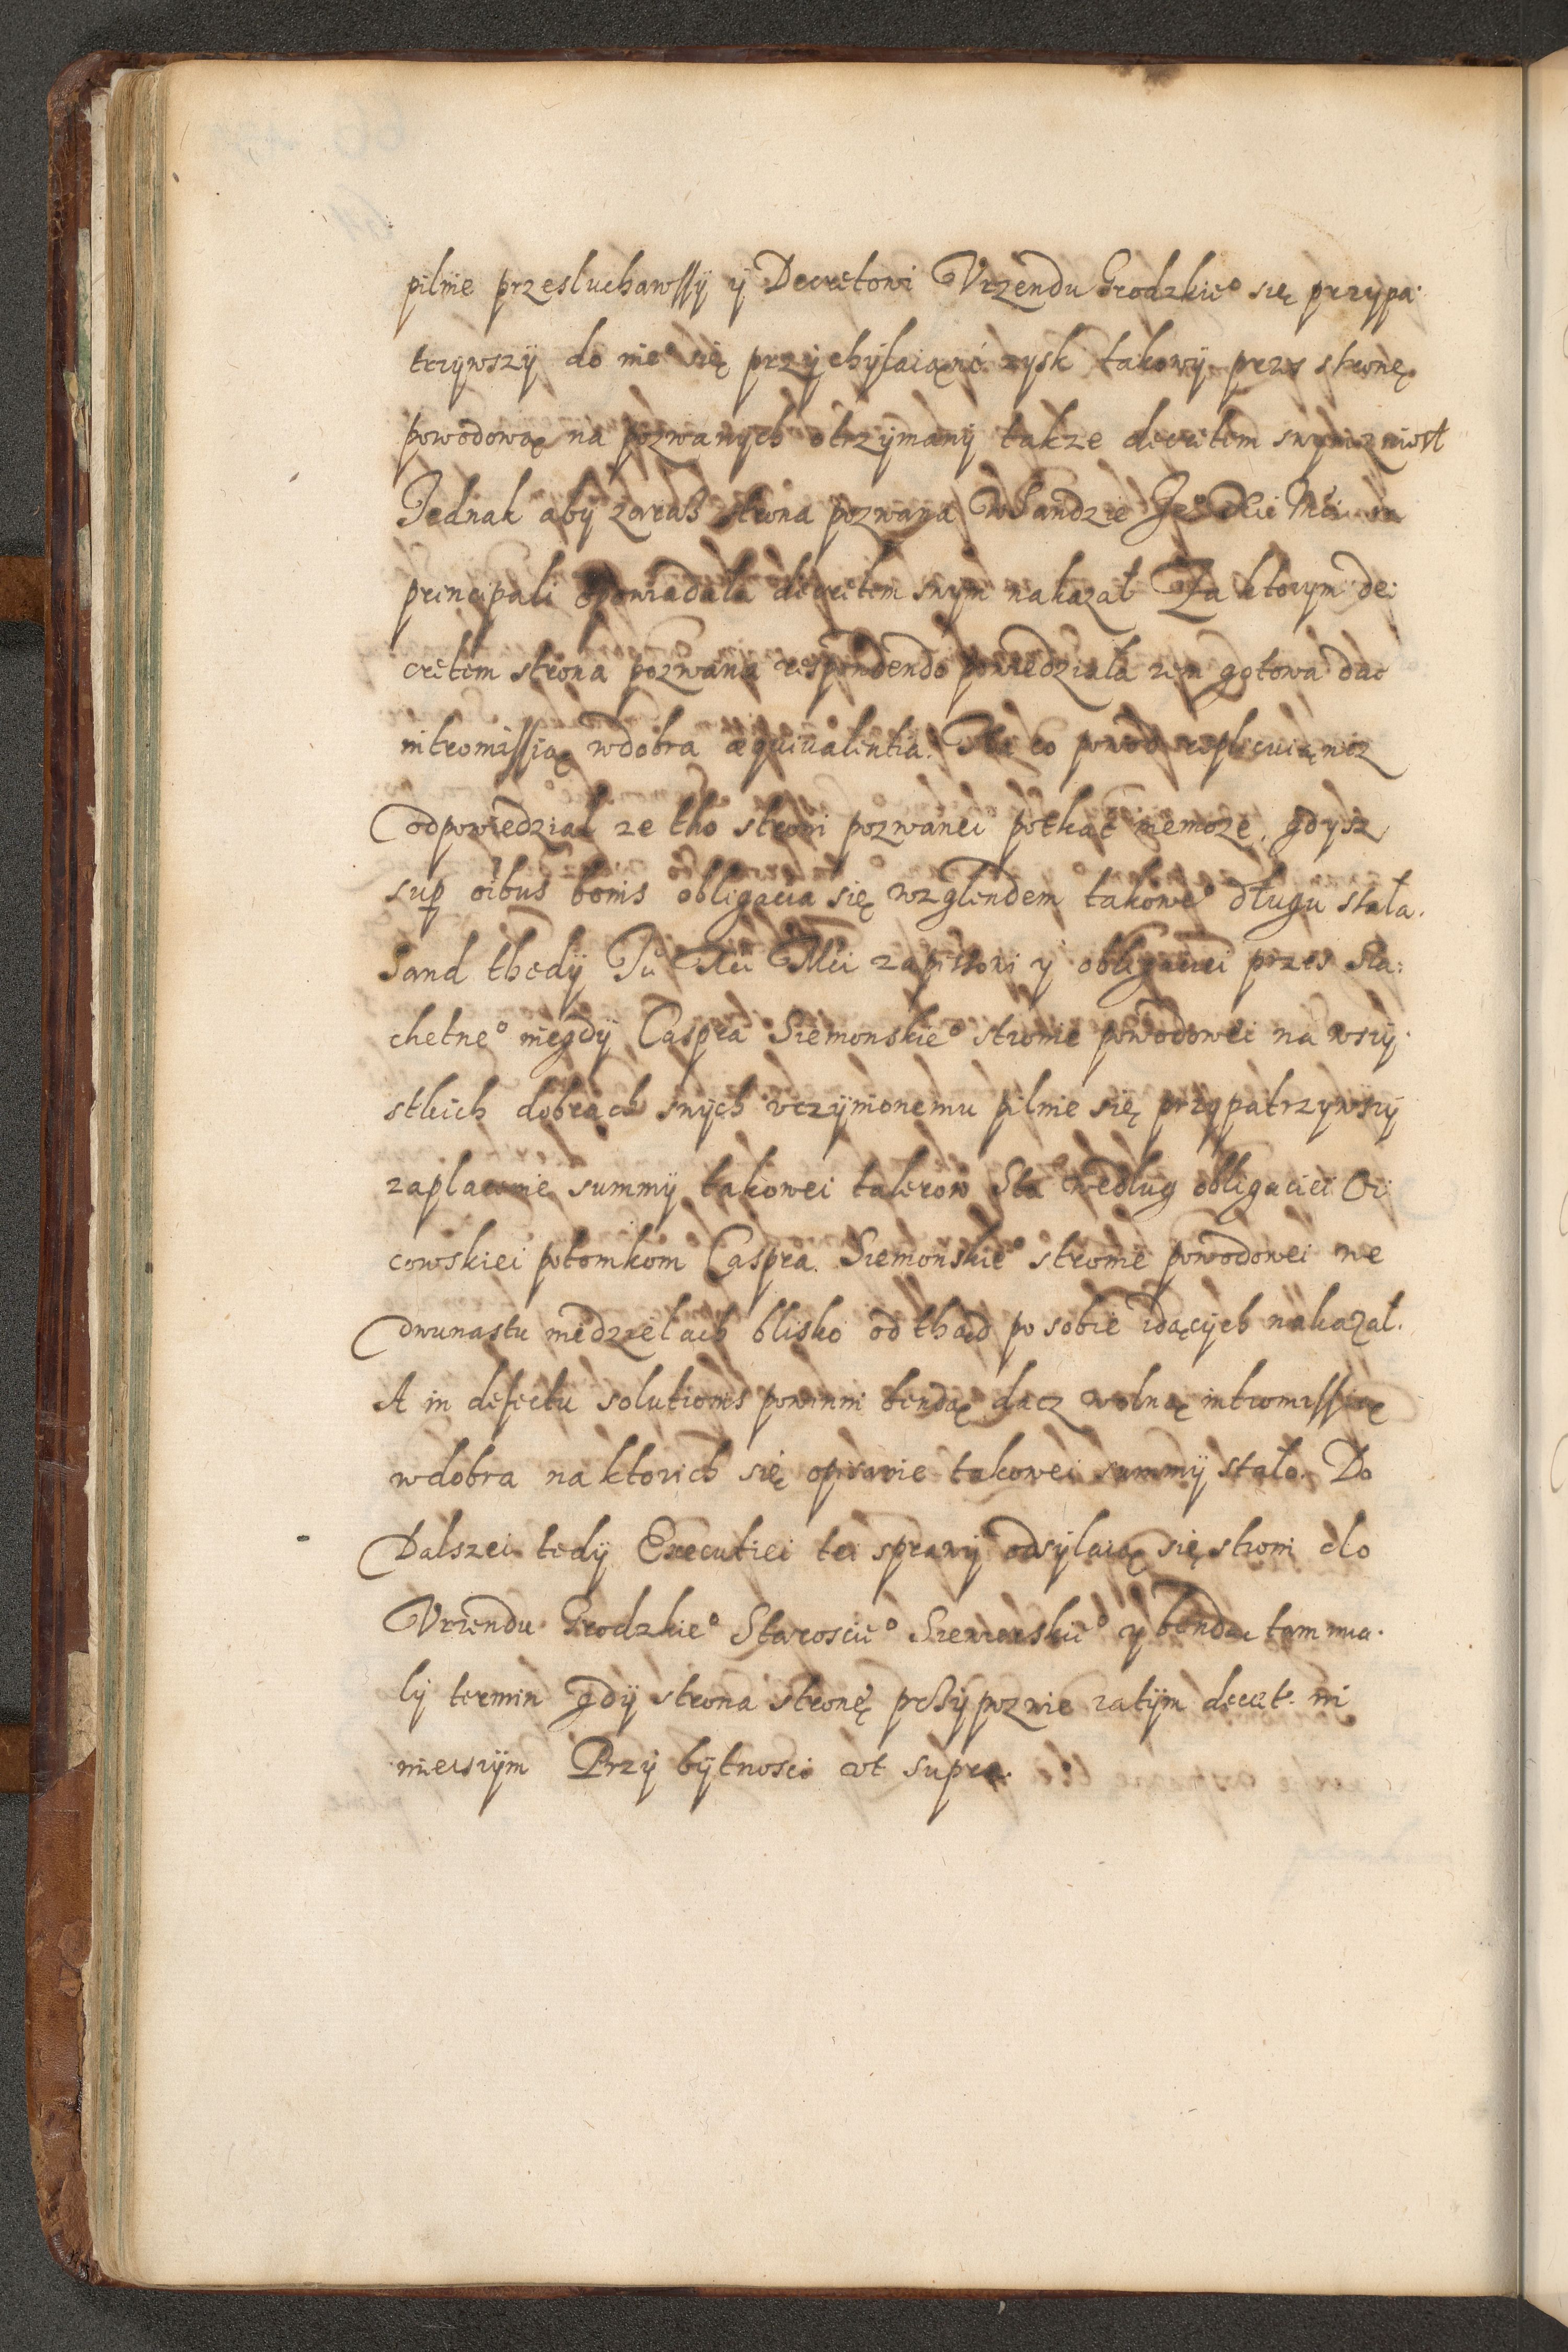 pilnie przesluchawssÿ ÿ Decretowi Vrzendu Grodzkie° się przypa:
trzywszÿ do nie° się przÿchÿlaiąnć zysk takowÿ przes stronę
powodową na pozwanÿch otrzÿmanÿ także decretem swym zniosł
Jednak abÿ zaras strona pozwana w Sandzie Je° Mći in
principali opowiadala decretem swÿm nakazał Za ktorym de:
cretem strona pozwana respondendo powiedziala zem gotowa dac
intromissią wdobra æquiualentia. Na co powod replicuiąncz
odpowiedział ze tho stroni pozwanei potkać niemoze, gdysz
sup oibus bonis obligacia się wzglendem takowe° długu stała.
Sand thedÿ Je° Mći zapissowi ÿ obligaciei przes Sla:
chetne° niegdÿ Caspra Siemonskie° stronie powodowei na wszÿ:
stkich dobrach swÿch vczÿnionemu pilnie się przÿpatrzÿwszÿ
zaplacenie summÿ takowei talerow Sta według obligaciei Oi:
cowskiei potomkom Caspra Siemonskie° stronie powodowei we
dwunastu niedzielach blisko od thąd po sobie idącÿch nakazał.
A in defectu solutionis powinni bendą dacz wolną intromissią
wdobra na ktorich się opisanie takowei summÿ stało. Do
Dalszei tedÿ Executiei tei sprawÿ odsÿlaią się stroni do
Vrzendu Grodzkie° Staroscie° Siewierskie° ÿ bendze tam mia:
lÿ termin gdÿ strona stronę przÿpozwie zatÿm decret. ni
nieiszÿm Przÿ bÿtnosci vt supra.